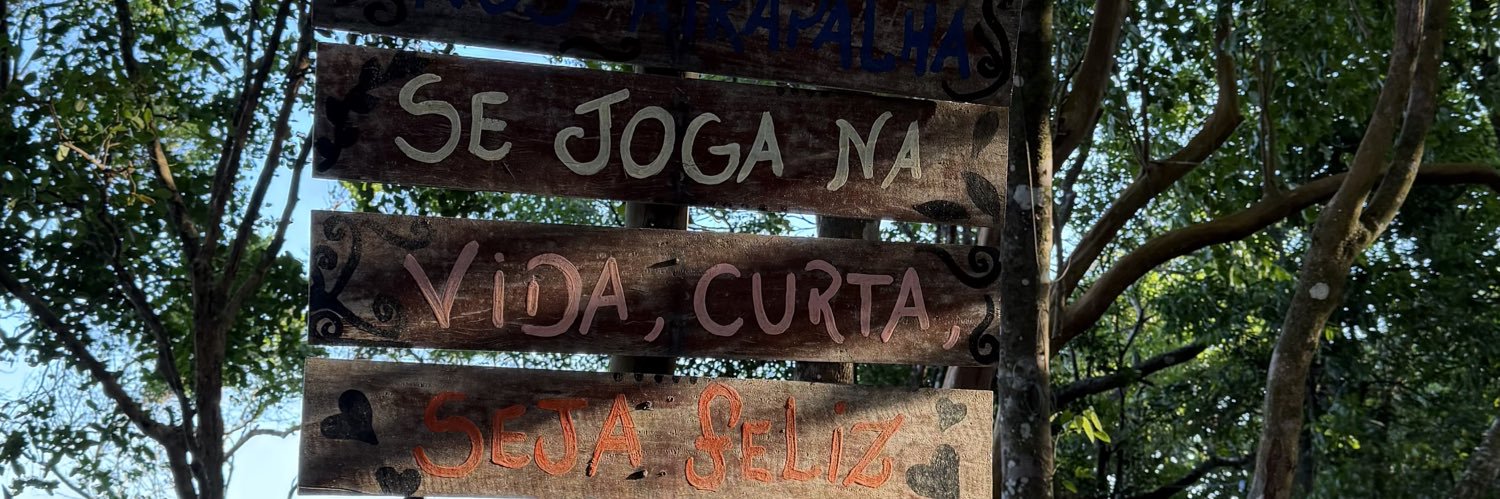 NOS ATRAPALHA
SE JOGA NA
ViDA, CURTA,
SEJA feLiZ